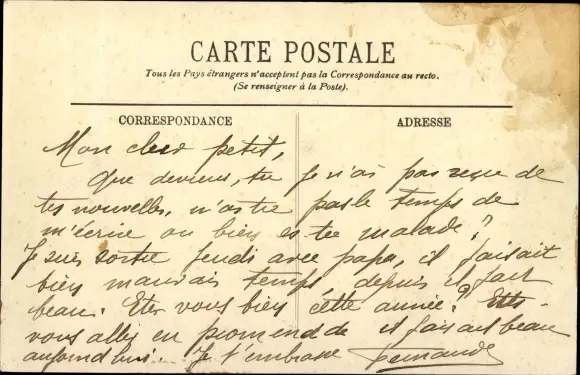 CARTE POSTALE
Tous les Pays étrangers n'acceptent pas la Correspondance au recto.
(Se renseigner à la Poste).
CORRESPONDANCE
ADRESSE
Mon cher petit,
Que deviens, tu je n'ai pas reçue de
tes nouvelles. n'as tu pas le temps de
m'écrire ou bien es tu malade?
Je suis sortie jeudi avec papa, il faisait
bien mauvais temps, depuis il fait
beau. Etes vous bien cette année?
vous allés en promenade il faisait beau
aujourd'hui. Je t'embrasse Fernande